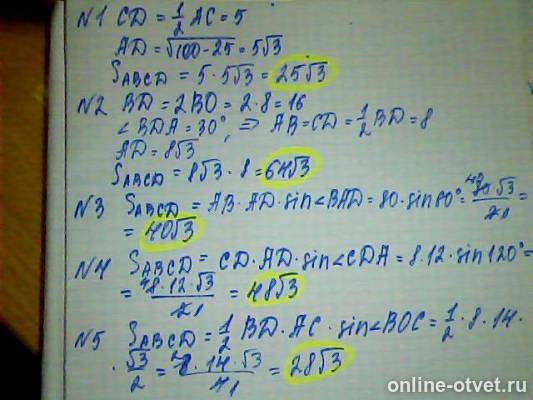 N1 CD = 1/2 AC = 5
AD = √100-25 = 5√3
S_ABCD = 5 · 5√3 = 25√3
N2 BD = 2BO = 2 · 8 = 16
∠BDA = 30°, ⇒ AB = CD = 1/2 BD = 8
AD = 8√3
S_ABCD = 8√3 · 8 = 64√3
N3 S_ABCD = AB · AD · sin∠BAD = 80 · sin60° = 40 80 · √3 / 2 1 =
= 40√3
N4 S_ABCD = CD · AD · sin∠CDA = 8 · 12 · sin120° =
= 4 8 · 12 · √3 / 2 1 = 48√3
N5 S_ABCD = 1/2 BD · AC · sin∠BOC = 1/2 · 8 · 14 ·
· √3/2 = 2 8 · 14 · √3 / 4 1 = 28√3
online-otvet.ru